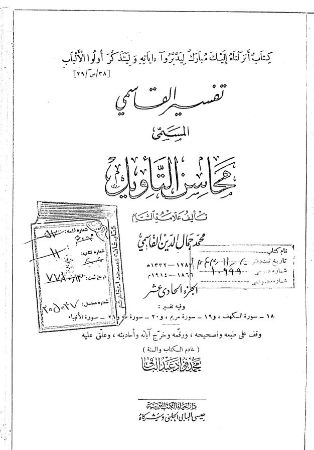 كِتَابٌ أَنزَلْنَاهُ إِلَيْكَ مُبَارَكٌ لِيَدَّبَّرُوا ءَايَاتِهِ وَلِيَتَذَكَّرَ أُولُوا الْأَلْبَابِ
[٣٨/ص/٢٩]
تفسير القاسمي
المسمى
محاسن التأويل
تأليف علامة الشام
محمد جمال الدين القاسمي
١٢٨٣ - ١٣٣٢ هـ
١٨٦٦ - ١٩١٤ م
الجزء الحادي عشر
وفيه تفسير:
١٨ - سورة الكهف، و١٩ - سورة مريم، و٢٠ - سورة طه و٢١ - سورة الأنبياء
وقف على طبعه وتصحيحه، ورقمه وخرج آياته وأحاديثه، وعلق عليه
(خادم الكتاب والسنة)
محمد فؤاد عبد الباقي
دار إحياء الكتب العربية
عيسى البابي الحلبي وشركاه